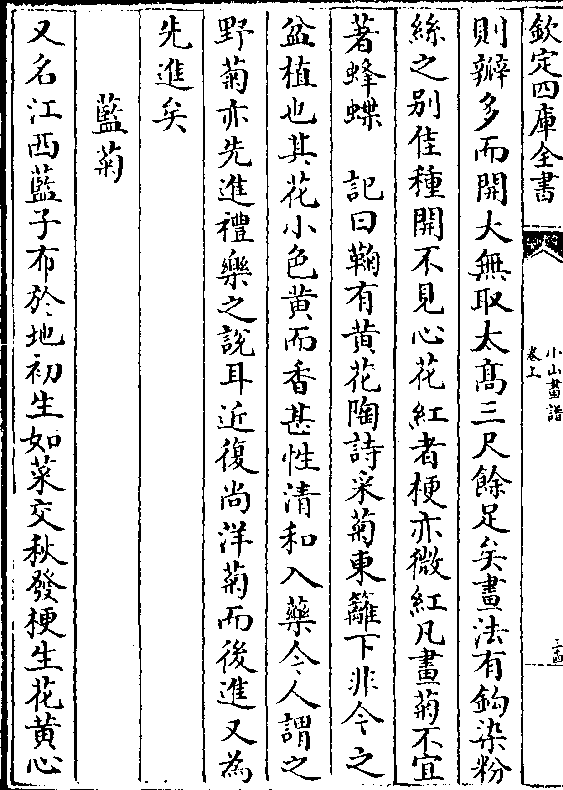 欽定四庫全書
小山畫譜
卷上
則瓣多而開大無取太髙三尺餘足矣畫法有鈎染粉
絲之别佳種開不見心花紅者梗亦微紅凡畫菊不宜
著蜂蝶　記曰鞠有黄花陶詩采菊東籬下非今之
盆植也其花小色黄而香甚性清和入藥今人謂之
野菊亦先進禮樂之說耳近復尚洋菊而後進又為
先進矣
藍菊
又名江西藍子布於地初生如菜交秋發梗生花黄心